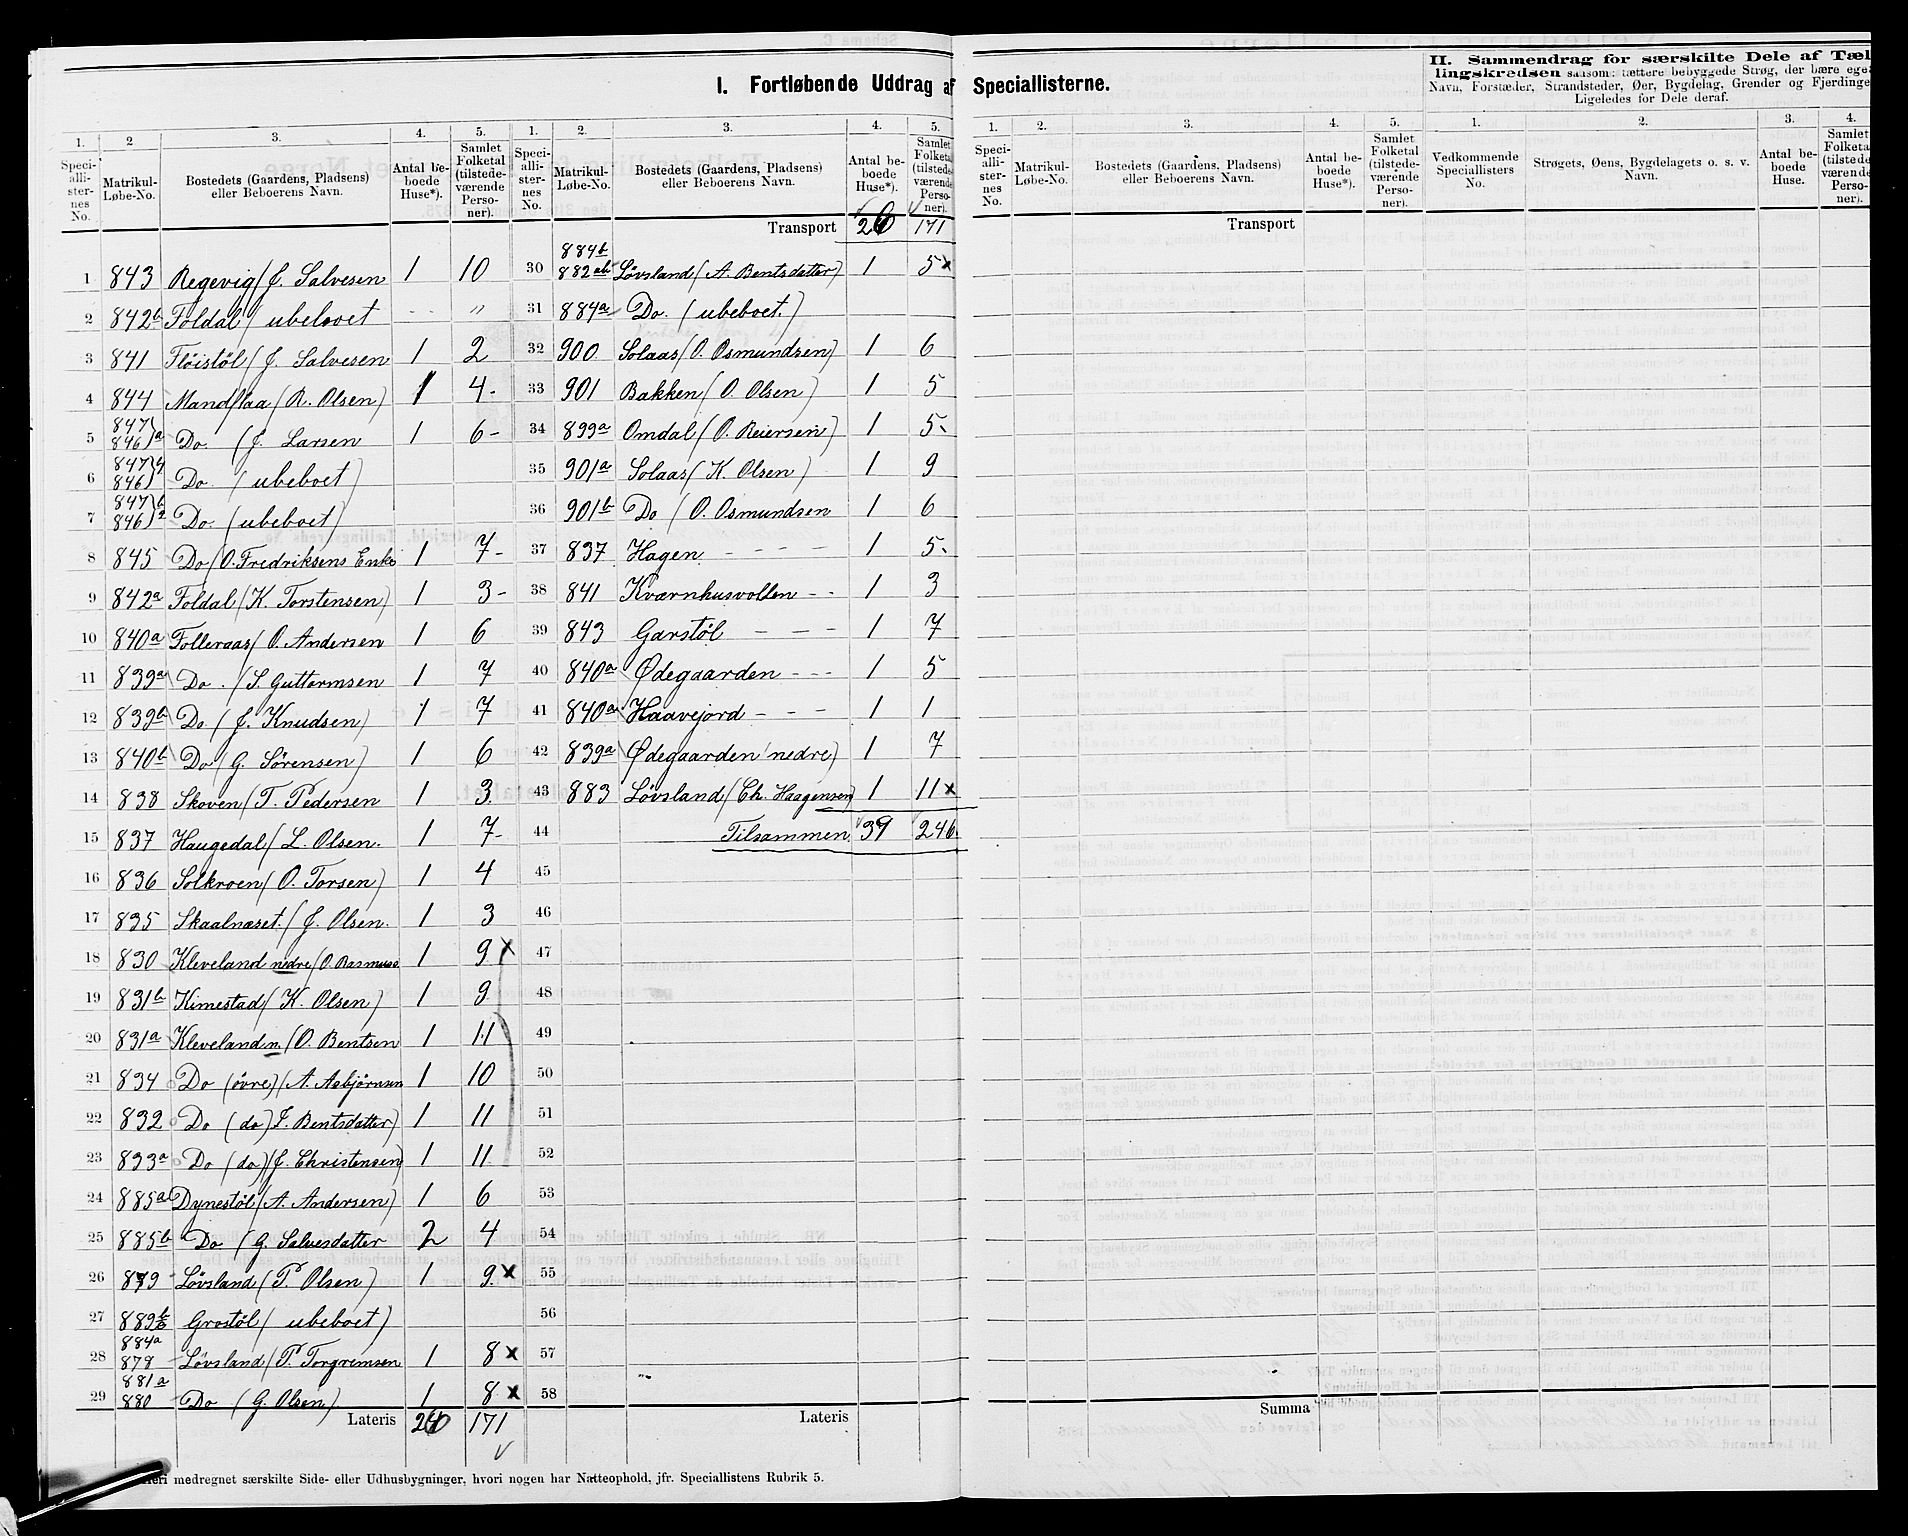 I. Fortløbende Uddrag af Speciallisterne.
1. 2 3. 4. 5. 1. 2. 3. 4. 5.
Speciallisternes No. Matrikul-Løbe-No. Bostedets (Gaardens, Pladsens) eller Beboerens Navn. Antal beboede Huse*). Samlet Folketal (tilstedeværende Personer).
Speciallisternes No. Matrikul-Løbe-No. Bostedets (Gaardens, Pladsens) eller Beboerens Navn. Antal beboede Huse*). Samlet Folketal (tilstedeværende Personer).
1 843 Regevig (J. Salvesen 1 10
2 842b Foldal (ubeboet - - "
3 841 Flöistöl (J. Salvesen 1 2
4 844 Mandflaa (R. Olsen) 1 4-
5 847 846)a Do. (J. Larsen 1 6-
6 847 846) Do. (ubeboet)
7 847 846) Do. (ubeboet)
8 845 Do (O. Fredriksens Enke 1 7-
9 842a Foldal (K. Torstensen) 1 3-
10 840a Folleraas (O. Andersen 1 6
11 839a Do. (S. Guttormsen 1 7
12 839b Do (J. Knudsen) 1 7
13 840b Do (G. Sörensen) 1 6
14 838 Skoven (T. Pedersen 1 3.
15 837 Haugedal (L. Olsen. 1 7-
16 836 Solkroen (O. Torsen) 1 4
17 835 Skaalnæset. (J. Olsen. 1 3
18 830 Kleveland nedre (O. Rasmuss. 1 9 x
19 831b Kimestad (K. Olsen) 1 9
20 831a Kleveland n. (O. Bentsen 1 11
21 834 Do (övre) (A. Asbjörnsen 1 10
22 832 Do (do) I. Bentsdatter) 1 11
23 833a Do (do) (J. Christensen) 1 11
24 885a Dynestöl (A. Andersen) 1 6
25 885b Do (G. Salvesdatter 2 4
26 879 Lövsland (P. Olsen) 1 9. x
27 889b Grostöl (ubeboet)
28 884a 878 Lövsland (P. Torgrimsen 1 8 x
29 881a 880 Do (G. Olsen). 1 8 x
Lateris 26 171
Transport 26 171
30 884b 882ab Lövsland (A. Bentsdatter) 1 5x
31 884a Do. (ubeboet.)
32 900 Solaas (O. Osmundsen) 1 6
33 901 Bakken (O. Olsen) 1 5
34 899a Omdal (O. Reiersen) 1 5.
35 901a Solaas (K. Olsen) 1 9
36 901b Do (O. Osmundsen 1 6
37 837 Hagen - - - - 1 5.
38 841 Kværnhusvollen - - 1 3
39 843 Garstöl - - - 1 7
40 840a Ødegaarden - - - 1 5
41 840a Haavejord - - - 1 1
42 839a Ødegaarden (nedre) 1 7
43 883 Lövsland (Ch. Haagensen) 1 11 x
44 Tilsammen 39 246.
45
46
47
48
49
50
51
52
53
54
55
56
57
58
Lateris
*) Heri medregnet særskilte Side- eller Udhusbygninger, hvori nogen har Natteophold, jfr. Speciallistens Rubrik 5.
1. 2. 3. 4. 5.
Speciallisternes No. Matrikul-Løbe-No. Bostedets (Gaardens, Pladsens) eller Beboerens Navn. Antal beboede Huse*). Samlet Folketal (tilstedeværende Personer).
Transport
Summa
II. Sammendrag for særskilte Dele af Tæl
lingskredsen saasom: tættere bebyggede Strøg, der bære ege
Navn, Forstæder, Strandsteder, Øer, Bygdelag, Grender og Fjerdinge
Ligeledes for Dele deraf.
1. 2. 3. 4.
Vedkommende Speciallisters No. Strøgets, Øens, Bygdelagets o. s. v. Navn. Antal beboede Huse. Samlet Folketal (tilstedeværende Personer).